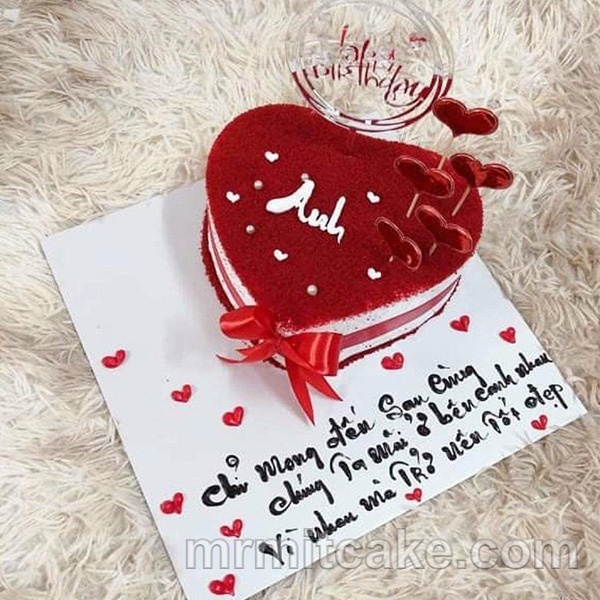 Happy
Birthday
Anh
Chỉ mong đến sau cùng
chúng Ta mãi ở bên cạnh nhau
Vì nhau mà Trở nên Tốt đẹp
mrmitcake.com